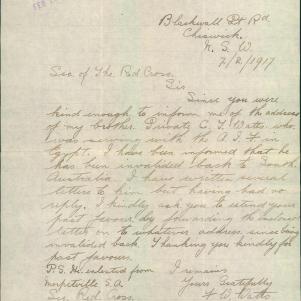 FEB
Blackwall Pt Rd
Chiswick.
N. S. W.
2/2/1917
Sec of The Red Cross.
Sir
Since you were
kind enough to inform me of the address
of my brother. Private C. T. Watts who
was serving with the A. I. F in
Egypt. I have been informed that he
has been invalided back to South
Australia. I have written several
letters to him but having had no
reply. I kindly ask you to extend your
past favours by forwarding the enclosed
letter on to whatever address since being
invalided back. Thanking you kindly for
past favours.
P.S. He enlisted from
Morpettville S.A
I remains
Yours Gratefully
Sec Red Cross.
F. W. Watts